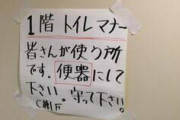 1階トイレマナー
皆さんが使う所
です。便器にして
下さい。守って下さい。